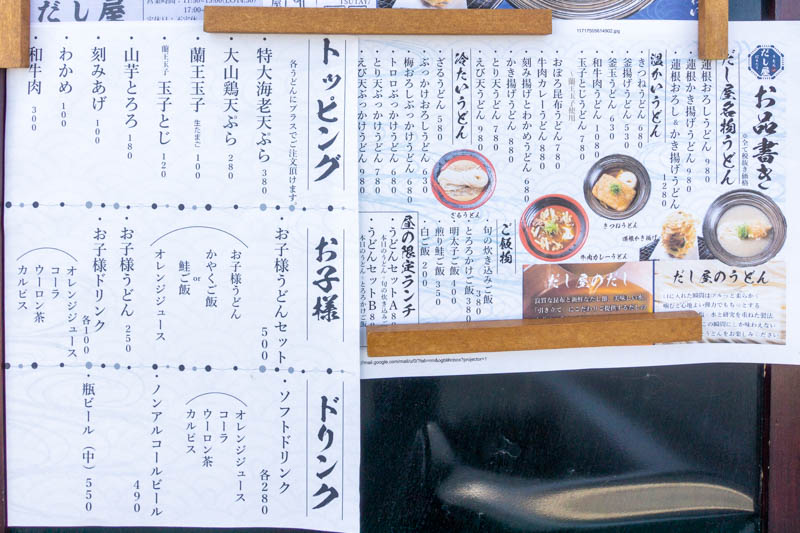 だし屋
11717555614902.jpg
だし屋
お品書き
※全て税抜き価格
だし屋名物うどん
蓮根おろしうどん 980
蓮根かき揚げうどん 980
蓮根おろし&かき揚げうどん 1280
温かいうどん
きつねうどん 680
釜揚げうどん 530
釜玉うどん 630
和牛肉うどん 1080
玉子とじうどん 780
〜蘭王玉子使用
おぼろ昆布うどん 780
牛肉カレーうどん 880
刻み揚げとわかめうどん 680
かき揚げうどん 880
とり天うどん 780
えび天うどん 980
冷たいうどん
ざるうどん 580
ぶっかけおろしうどん 630
梅おろしぶっかけうどん 680
トロロぶっかけうどん 680
とり天ぶっかけうどん 780
えび天ぶっかけうどん 980
ざるうどん
きつねうどん
蓮根かき揚げ
牛肉カレーうどん
ご飯物
旬の炊き込みご飯 380
とろろかけご飯 380
明太子ご飯 400
煎り鮭ご飯 350
白ご飯 200
昼の限定ランチ
うどんセットA
うどんセットB
だし屋のだし
だし屋のうどん
mail.google.com/mail/u/0/?tab=rm&ogbl#inbox?projector=1
トッピング
各うどんにプラスでご注文頂けます。
・特大海老天ぷら 380
・大山鶏天ぷら 280
・蘭王玉子 生たまご 100
・蘭王玉子 玉子とじ 120
・山芋とろろ 180
・刻みあげ 100
・わかめ 100
・和牛肉 300
お子様
・お子様うどんセット 500
お子様うどん
かやくご飯
or
鮭ご飯
オレンジジュース
・お子様うどん 250
・お子様ドリンク 各100
オレンジジュース
コーラ
ウーロン茶
カルピス
ドリンク
・ソフトドリンク 各280
オレンジジュース
コーラ
ウーロン茶
カルピス
・ノンアルコールビール 490
・瓶ビール(中) 550